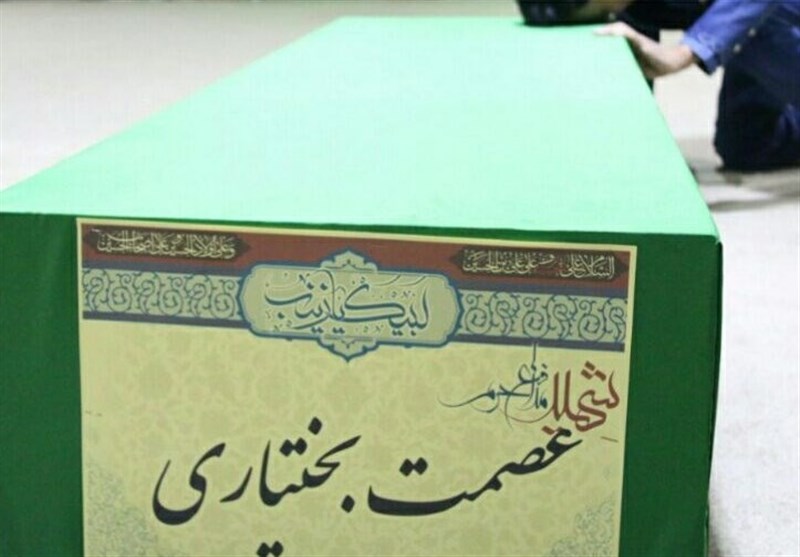 السلام علی و علی علی بن الحسین و علی اولاد الحسین و علی اصحاب الحسین
لبیک یا زینب
شهید مدافع حرم
عصمت بختیاری